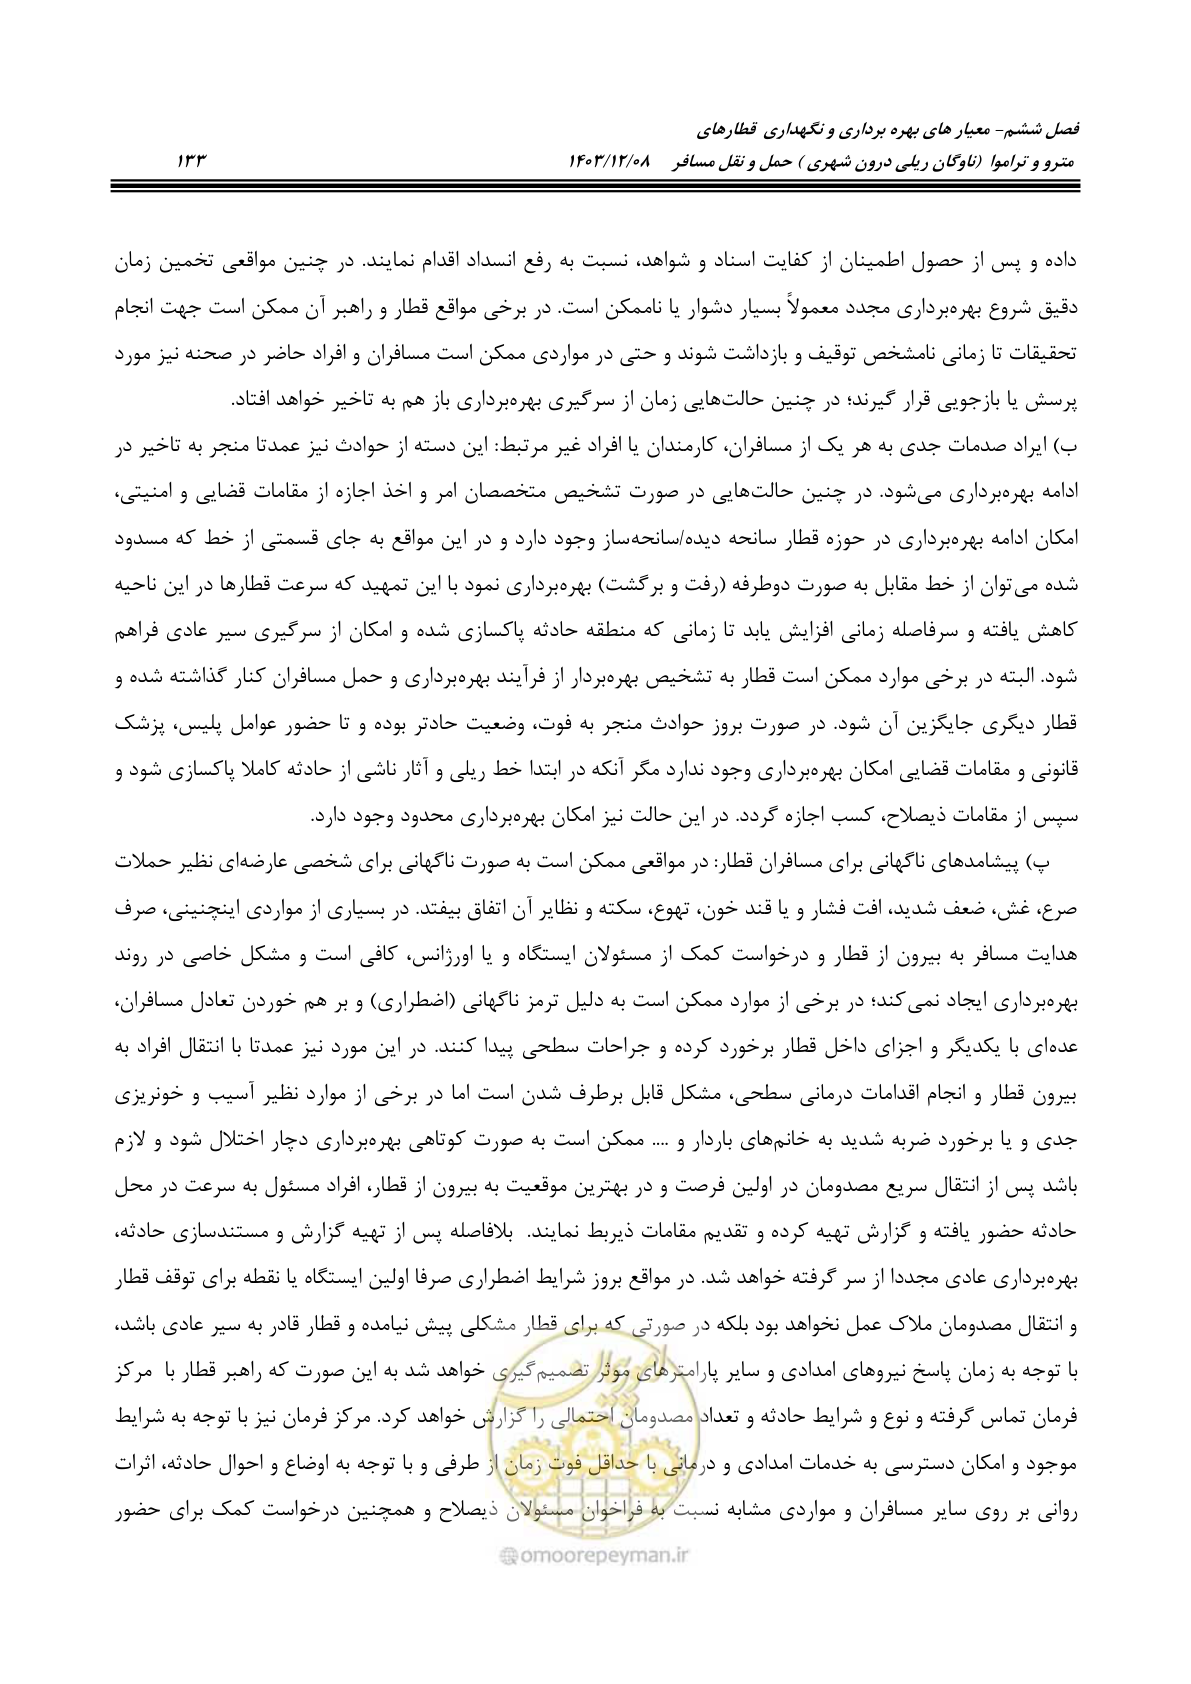 فصل ششم- معیار های بهره برداری و نگهداری قطارهای
مترو و تراموا (ناوگان ریلی درون شهری ) حمل و نقل مسافر ۱۴۰۳/۱۲/۰۸ ۱۳۳
داده و پس از حصول اطمینان از کفایت اسناد و شواهد، نسبت به رفع انسداد اقدام نمایند. در چنین مواقعی تخمین زمان
دقیق شروع بهره‌برداری مجدد معمولاً بسیار دشوار یا ناممکن است. در برخی مواقع قطار و راهبر آن ممکن است جهت انجام
تحقیقات تا زمانی نامشخص توقیف و بازداشت شوند و حتی در مواردی ممکن است مسافران و افراد حاضر در صحنه نیز مورد
پرسش یا بازجویی قرار گیرند؛ در چنین حالت‌هایی زمان از سرگیری بهره‌برداری باز هم به تاخیر خواهد افتاد.
ب) ایراد صدمات جدی به هر یک از مسافران، کارمندان یا افراد غیر مرتبط: این دسته از حوادث نیز عمدتا منجر به تاخیر در
ادامه بهره‌برداری می‌شود. در چنین حالت‌هایی در صورت تشخیص متخصصان امر و اخذ اجازه از مقامات قضایی و امنیتی،
امکان ادامه بهره‌برداری در حوزه قطار سانحه دیده/سانحه‌ساز وجود دارد و در این مواقع به جای قسمتی از خط که مسدود
شده می‌توان از خط مقابل به صورت دوطرفه (رفت و برگشت) بهره‌برداری نمود با این تمهید که سرعت قطارها در این ناحیه
کاهش یافته و سرفاصله زمانی افزایش یابد تا زمانی که منطقه حادثه پاکسازی شده و امکان از سرگیری سیر عادی فراهم
شود. البته در برخی موارد ممکن است قطار به تشخیص بهره‌بردار از فرآیند بهره‌برداری و حمل مسافران کنار گذاشته شده و
قطار دیگری جایگزین آن شود. در صورت بروز حوادث منجر به فوت، وضعیت حادتر بوده و تا حضور عوامل پلیس، پزشک
قانونی و مقامات قضایی امکان بهره‌برداری وجود ندارد مگر آنکه در ابتدا خط ریلی و آثار ناشی از حادثه کاملا پاکسازی شود و
سپس از مقامات ذیصلاح، کسب اجازه گردد. در این حالت نیز امکان بهره‌برداری محدود وجود دارد.
پ) پیشامدهای ناگهانی برای مسافران قطار: در مواقعی ممکن است به صورت ناگهانی برای شخصی عارضه‌ای نظیر حملات
صرع، غش، ضعف شدید، افت فشار و یا قند خون، تهوع، سکته و نظایر آن اتفاق بیفتد. در بسیاری از مواردی اینچنینی، صرف
هدایت مسافر به بیرون از قطار و درخواست کمک از مسئولان ایستگاه و یا اورژانس، کافی است و مشکل خاصی در روند
بهره‌برداری ایجاد نمی‌کند؛ در برخی از موارد ممکن است به دلیل ترمز ناگهانی (اضطراری) و بر هم خوردن تعادل مسافران،
عده‌ای با یکدیگر و اجزای داخل قطار برخورد کرده و جراحات سطحی پیدا کنند. در این مورد نیز عمدتا با انتقال افراد به
بیرون قطار و انجام اقدامات درمانی سطحی، مشکل قابل برطرف شدن است اما در برخی از موارد نظیر آسیب و خونریزی
جدی و یا برخورد ضربه شدید به خانم‌های باردار و .... ممکن است به صورت کوتاهی بهره‌برداری دچار اختلال شود و لازم
باشد پس از انتقال سریع مصدومان در اولین فرصت و در بهترین موقعیت به بیرون از قطار، افراد مسئول به سرعت در محل
حادثه حضور یافته و گزارش تهیه کرده و تقدیم مقامات ذیربط نمایند. بلافاصله پس از تهیه گزارش و مستندسازی حادثه،
بهره‌برداری عادی مجددا از سر گرفته خواهد شد. در مواقع بروز شرایط اضطراری صرفا اولین ایستگاه یا نقطه برای توقف قطار
و انتقال مصدومان ملاک عمل نخواهد بود بلکه در صورتی که برای قطار مشکلی پیش نیامده و قطار قادر به سیر عادی باشد،
با توجه به زمان پاسخ نیروهای امدادی و سایر پارامترهای موثر تصمیم‌گیری خواهد شد به این صورت که راهبر قطار با مرکز
فرمان تماس گرفته و نوع و شرایط حادثه و تعداد مصدومان احتمالی را گزارش خواهد کرد. مرکز فرمان نیز با توجه به شرایط
موجود و امکان دسترسی به خدمات امدادی و درمانی با حداقل فوت زمان از طرفی و با توجه به اوضاع و احوال حادثه، اثرات
روانی بر روی سایر مسافران و مواردی مشابه نسبت به فراخوان مسئولان ذیصلاح و همچنین درخواست کمک برای حضور
امور پیمان
@omoorepeyman.ir